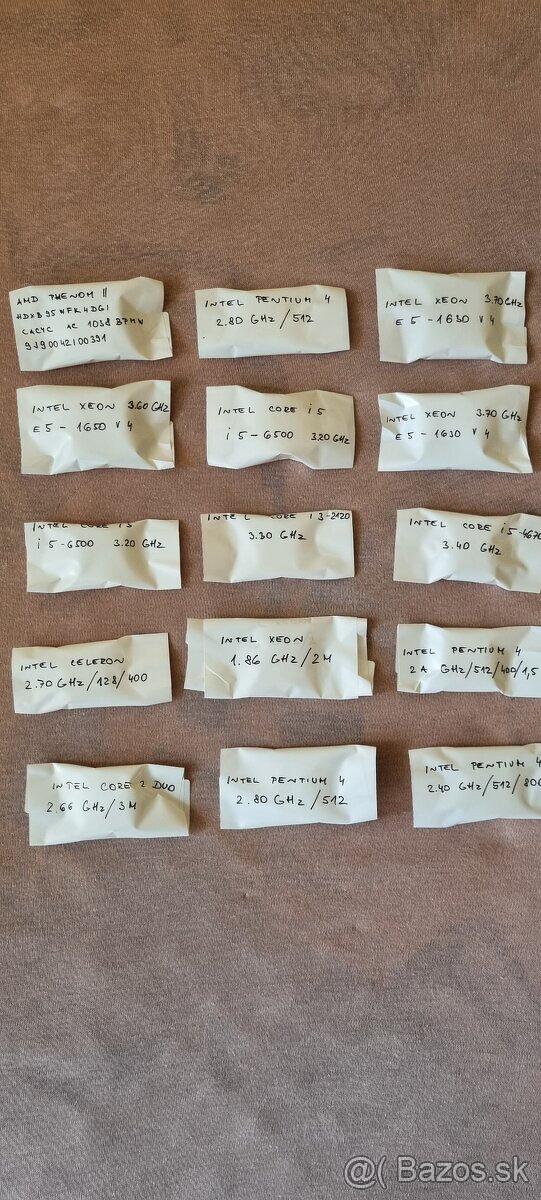 AMD PHENOM II
HDXB95WFK4DGI
CACYC AC 1038
INTEL PENTIUM 4
2.80 GHz / 512
INTEL XEON 3.70 GHz
E5 - 1630 V4
INTEL XEON 3.60 GHz
E5 - 1650 V4
INTEL CORE i5
i5 - 6500 3.20 GHz
INTEL XEON 3.70 GHz
E5 - 1630 V4
INTEL CORE i5
i5 - 6500 3.20 GHz
INTEL CORE i3-2120
3.30 GHz
INTEL CORE i5-4670
3.40 GHz
INTEL CELERON
2.70 GHz/128/400
INTEL XEON
1.86 GHz/2M
INTEL PENTIUM 4
2A GHz/512/400/1,5
INTEL CORE 2 DUO
2.66 GHz/3M
INTEL PENTIUM 4
2.80 GHz/512
INTEL PENTIUM 4
2.40 GHz/512/800
@( Bazos.sk